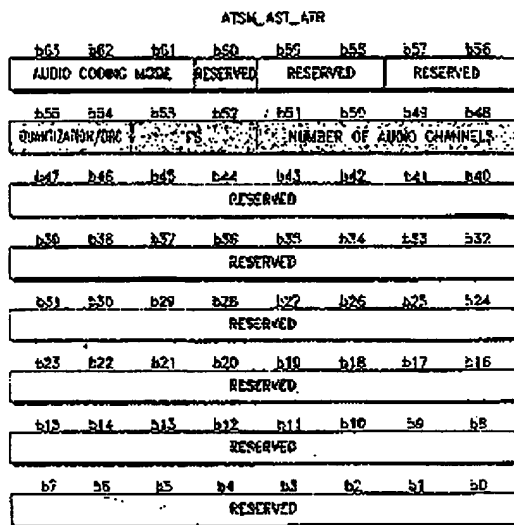 ATSM_AST_ATR
b63 b62 b61 b60 b59 b58 b57 b56
AUDIO CODING MODE RESERVED RESERVED RESERVED
b55 b54 b53 b52 b51 b50 b49 b48
QUANTIZATION/DRC FS NUMBER OF AUDIO CHANNELS
b47 b46 b45 b44 b43 b42 b41 b40
RESERVED
b39 b38 b37 b36 b35 b34 b33 b32
RESERVED
b31 b30 b29 b28 b27 b26 b25 b24
RESERVED
b23 b22 b21 b20 b19 b18 b17 b16
RESERVED
b15 b14 b13 b12 b11 b10 b9 b8
RESERVED
b7 b6 b5 b4 b3 b2 b1 b0
RESERVED